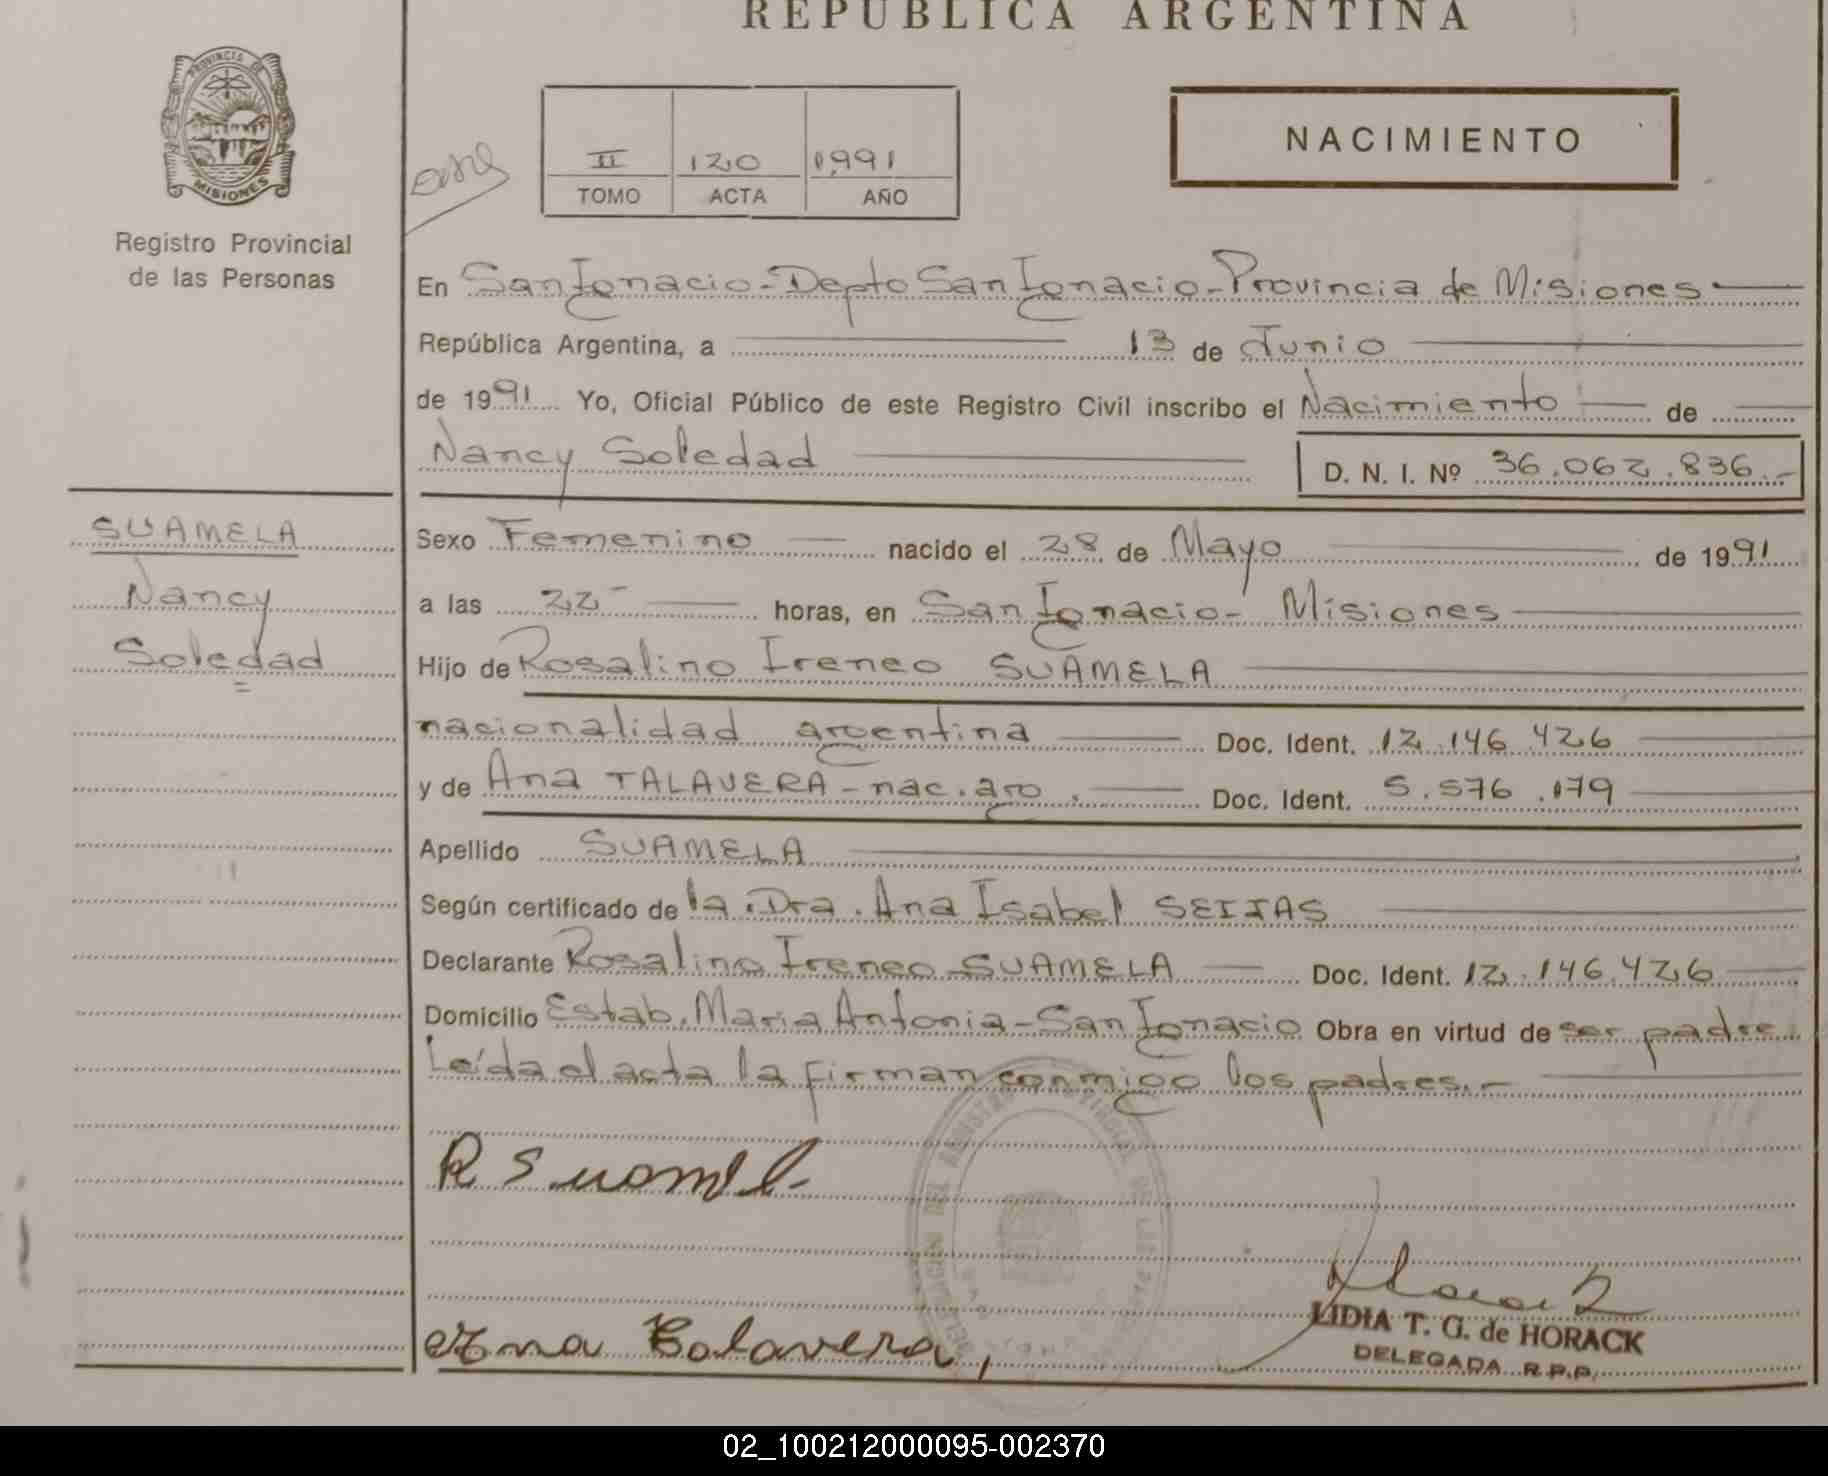 REPUBLICA ARGENTINA
PROVINCIA DE
MISIONES
Registro Provincial
de las Personas
II 120 1991
TOMO ACTA AÑO
NACIMIENTO
En San Ignacio - Depto San Ignacio - Provincia de Misiones
República Argentina, a 13 de Junio
de 1991 Yo, Oficial Público de este Registro Civil inscribo el Nacimiento de
Nancy Soledad D. N. I. Nº 36.062.836.-
SUAMELA
Nancy
Soledad
Sexo Femenino nacido el 28 de Mayo de 1991
a las 22 horas, en San Ignacio - Misiones
Hijo de Rosalino Ireneo SUAMELA
nacionalidad argentina Doc. Ident. 12.146.426
y de Ana TALAVERA - nac. arg. Doc. Ident. 5.576.179
Apellido SUAMELA
Según certificado de la Dra. Ana Isabel SEIJAS
Declarante Rosalino Ireneo SUAMELA Doc. Ident. 12.146.426
Domicilio Estab. Maria Antonia - San Ignacio Obra en virtud de ser padre
Leída el acta la firman conmigo los padres.-
R Suamel
Ana Talavera
LIDIA T. G. de HORACK
DELEGADA R.P.P.
02_100212000095-002370